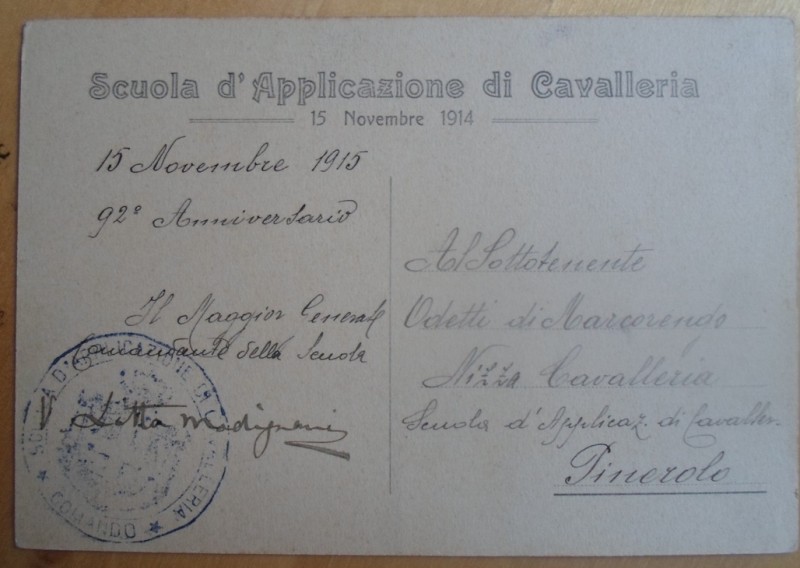 Scuola d'Applicazione di Cavalleria
15 Novembre 1914
15 Novembre 1915
92º Anniversario
Il Maggior Generale
Comandante della Scuola
V Litta Modignani
SCUOLA D'APPLICAZIONE DI CAVALLERIA
COMANDO
Al Sottotenente
Odetti di Marcorengo
Nizza Cavalleria
Scuola d'Applicaz. di Cavaller.
Pinerolo